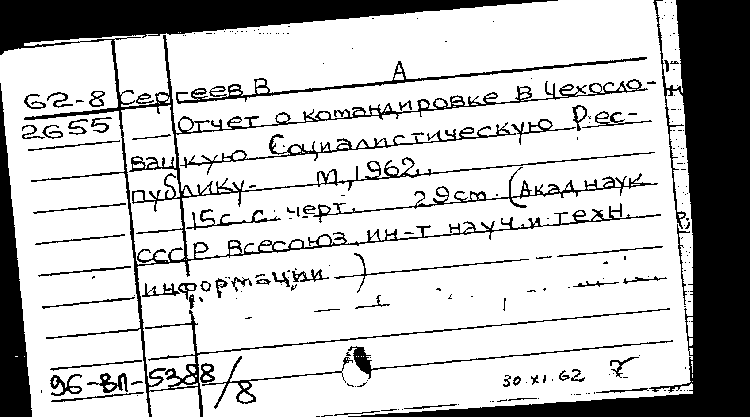 А
62-8 Сергеев, В
2655 Отчет о командировке в Чехосло-
вацкую Социалистическую Рес-
публику. М., 1962.
15 с. с. черт. 29 см. (Акад. наук
СССР. Всесоюз. ин-т науч. и техн.
информации)
96-8п-5388/8
30.XI.62